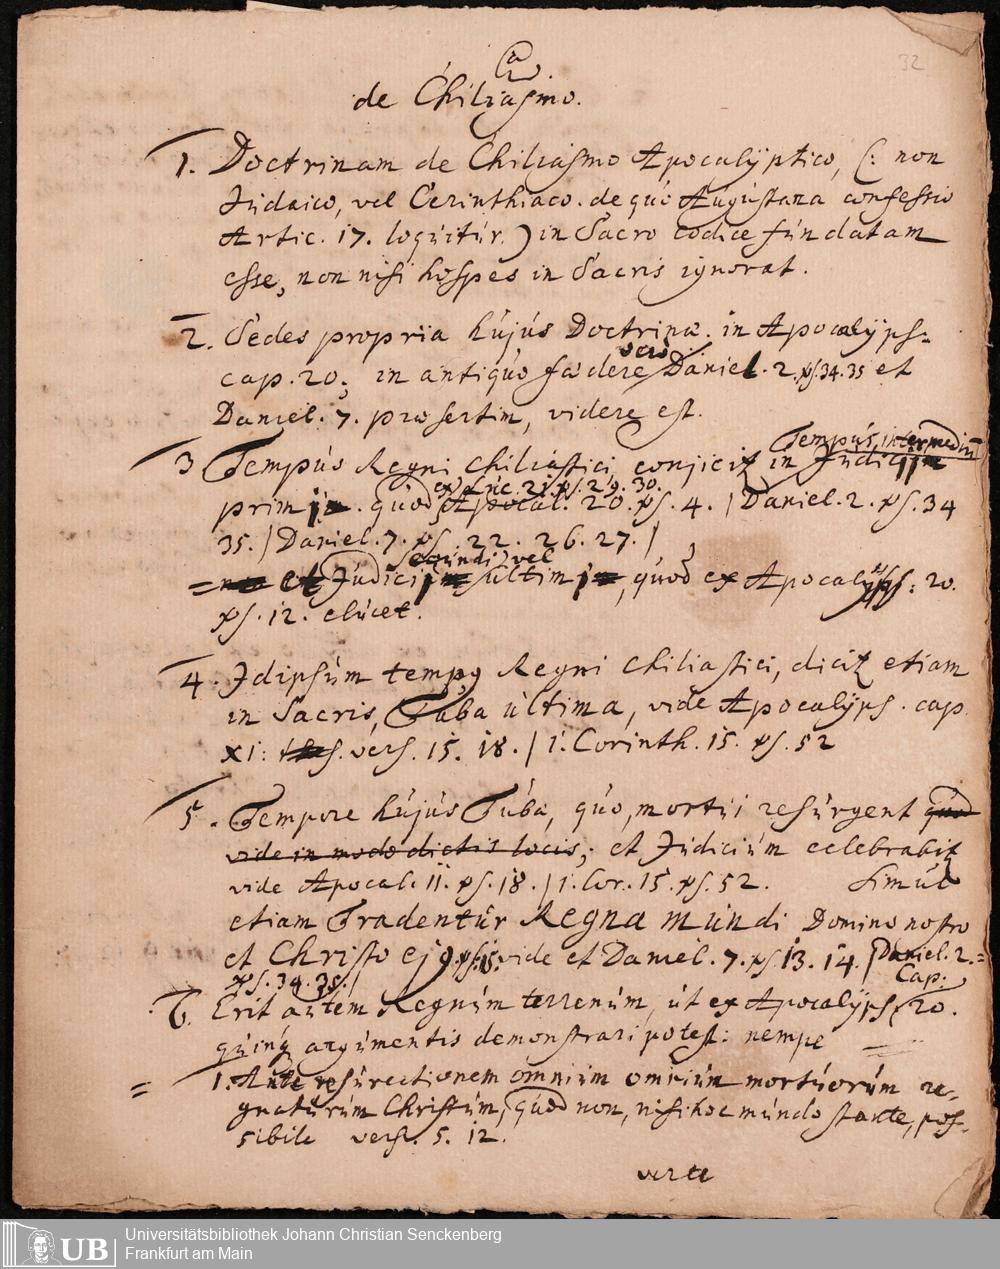 32
de Chiliasmo.
1. Doctrinam de Chiliasmo Apocalÿptico, (: non
Judaico, vel Cerinthiaco. de quó Augústana confessio
Artic. 17. loqúitúr.) in Sacro codice fúndatam
esse, non nisi hospes in Sacris ignorat.
2. Sedes propria hújús Doctrinæ. in Apocalÿps=
cap. 20; in antiqúo fœdere verò Daniel. 2. ps. 34. 35 et
Daniel. 7. præsertim, videre est.
Tempús, intermediú
3 Tempús Regni chiliastici, conjicitz in Júdicij
ex Lúc. 21. ps. 29. 30.
primi. qúod Apocal. 20. ps. 4. / Daniel. 2. ps. 34
35. / Daniel. 7. ps. 22. 26. 27. /
Secúndi, vel
et Júdici últimi, qúod ex Apocalÿps: 20.
ps. 12. elúcet.
4. Idipsúm temp9 Regni chiliastici, dicitz etiam
in Sacris, Túba última, vide Apocalÿps. cap
XI: vers. 15. 18. / 1. Corinth. 15. ps. 52
5. Tempore hújús Túbæ, qúo, mortúi resúrgent qúod
vide in modo dictis locis; et Júdiciúm celebrabitz
vide Apocal. 11. ps. 18. / 1. Cor. 15. ps. 52. Simúl
etiam Tradentúr Regna múndi Domino nostro
et Christo ej9. ps. 15. vide et Daniel. 7. ps. 13. 14. / Daniel. 2.=
ps. 34. 35. / Cap.
6. Erit aútem Regnúm terrenúm, út ex Apocalÿps. 20.
qúinq argúmentis demonstrari potest: nempe
= 1. Ante resúrectionem omniúm omniúm mortúorúm re=
gnatúrúm Christúm, qúod non, nisi hoc múndo stante, pos=
sibile vers. 5. 12.
verte
UB Universitätsbibliothek Johann Christian Senckenberg
Frankfurt am Main